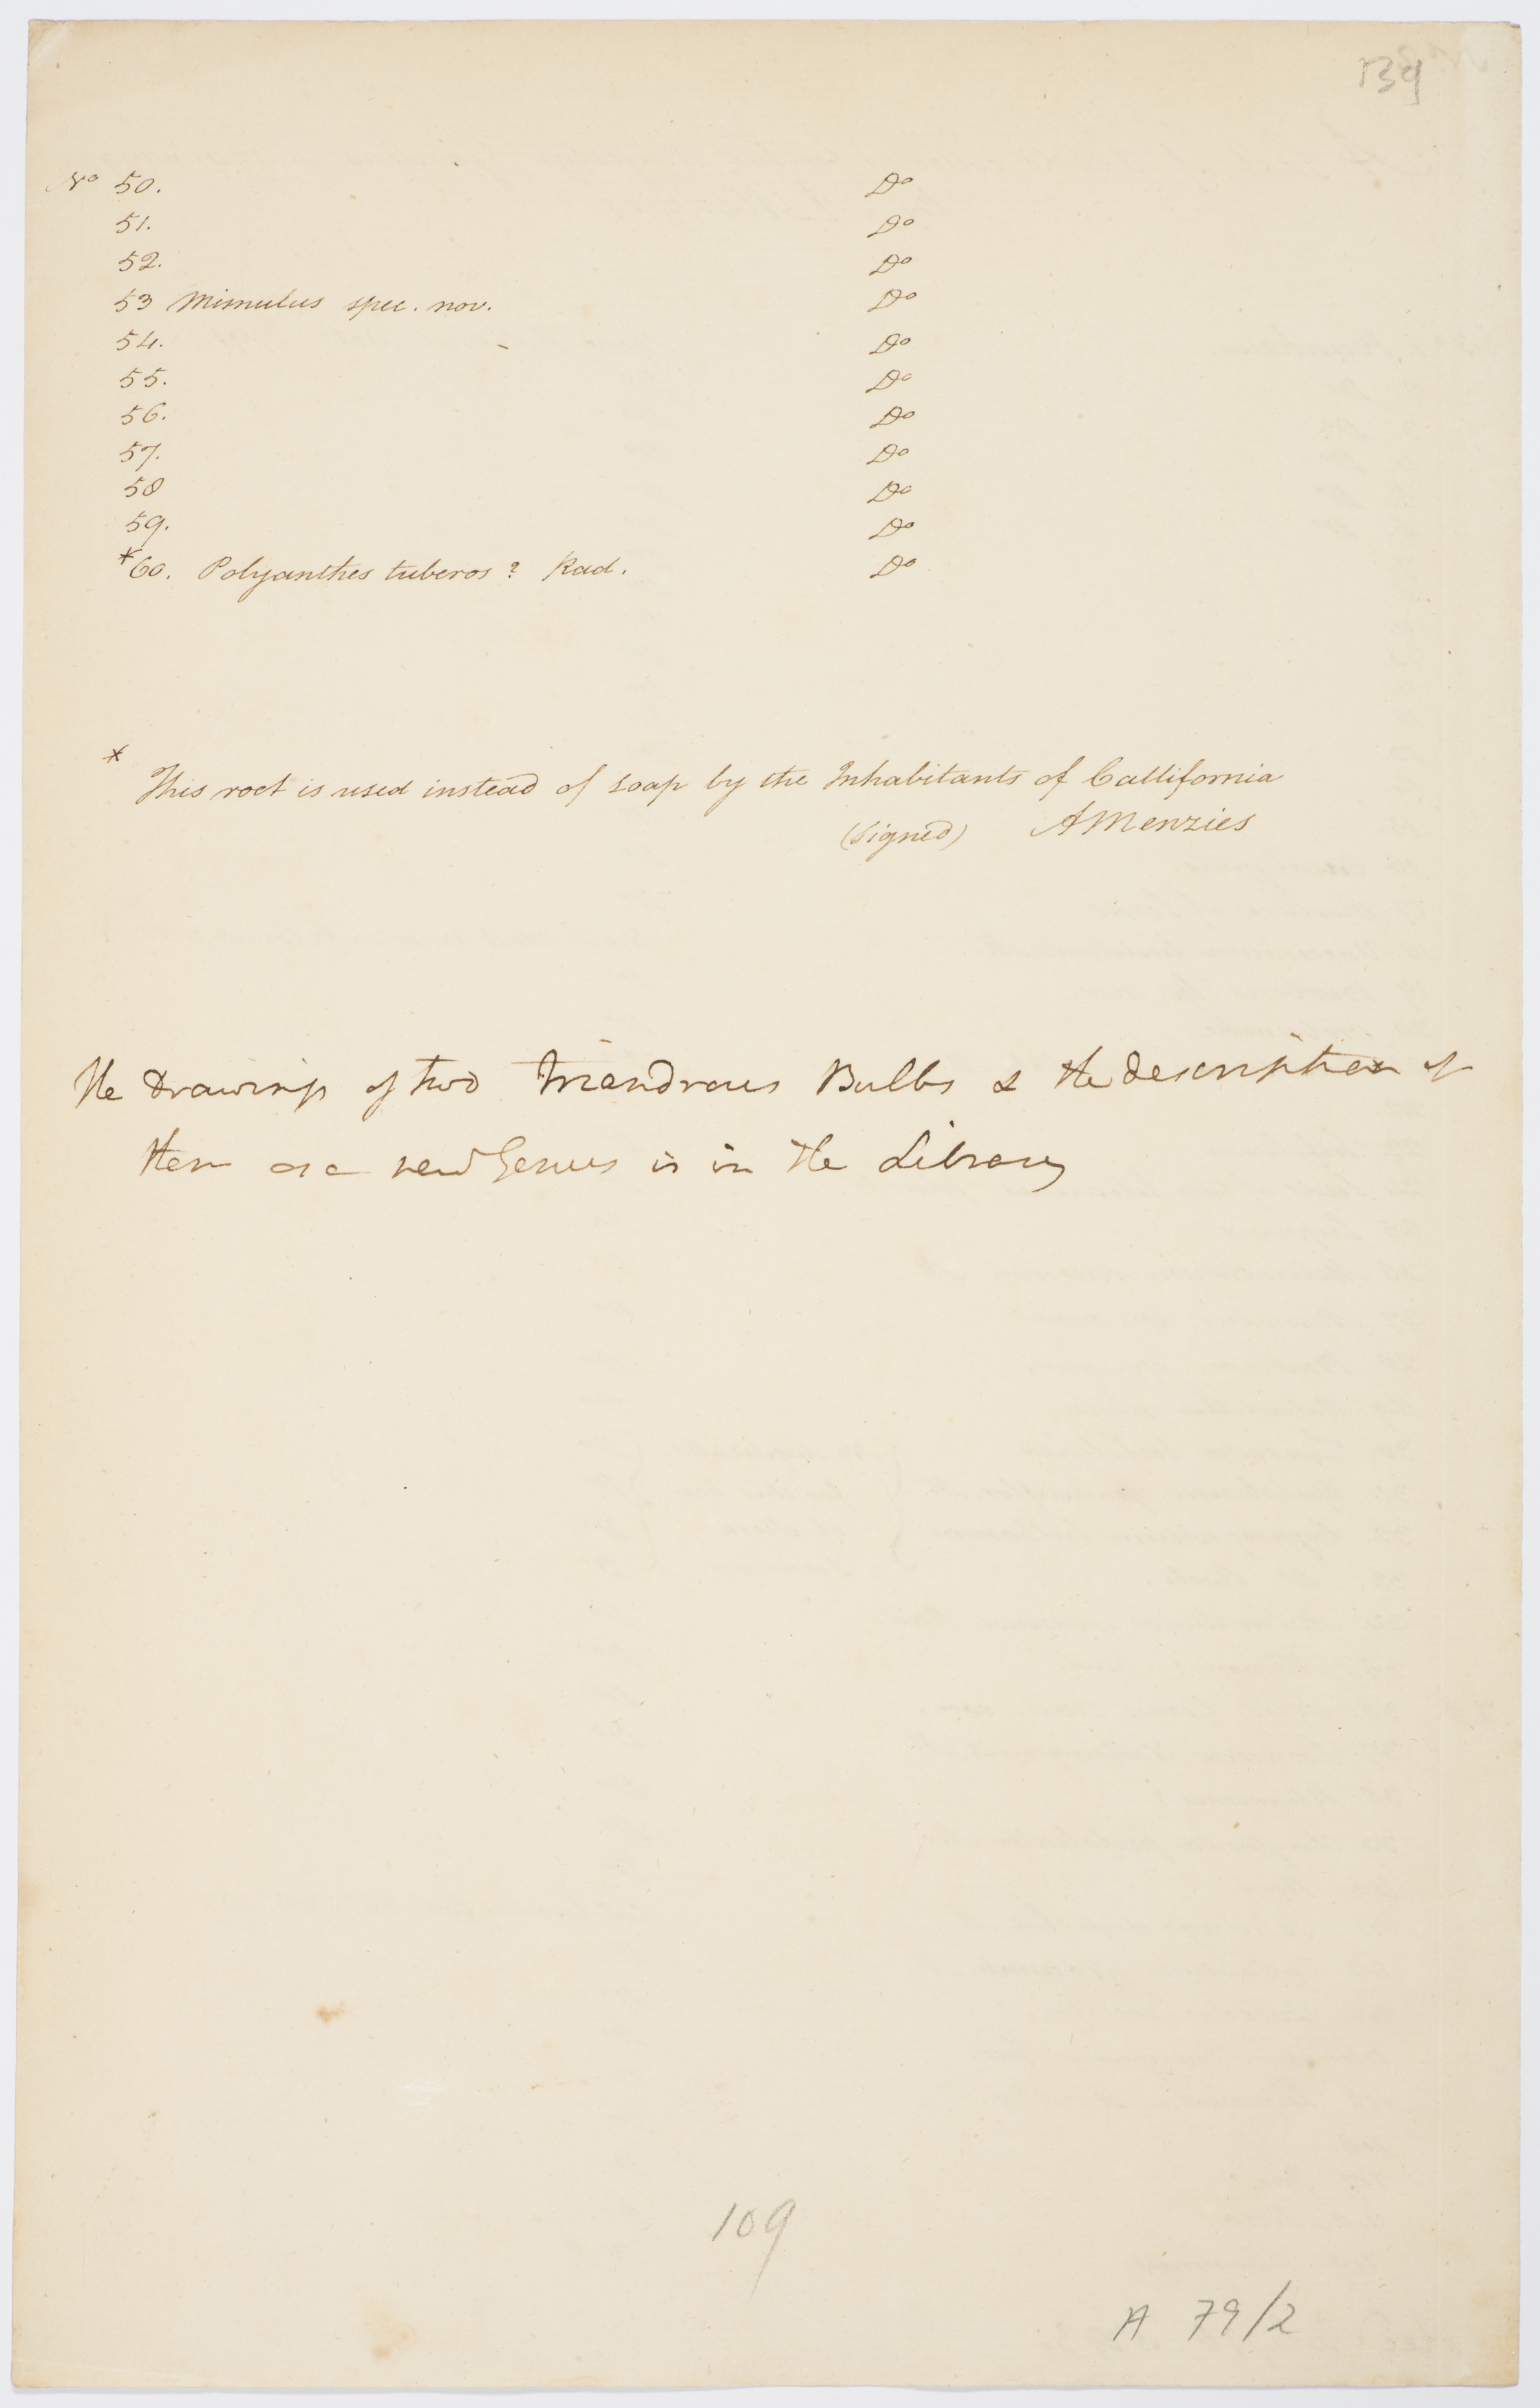 139
No 50. Do
51. Do
52. Do
53 Mimulus spec. nov. Do
54. Do
55. Do
56. Do
57. Do
58 Do
59. Do
*60. Polyanthes tuberos? Rad. Do
* This root is used instead of soap by the Inhabitants of Callifornia
(Signed) AMenzies
The Drawings of two Triandrous Bulbs & the description of
them as a new Genus is in the Library
109
A 79/2